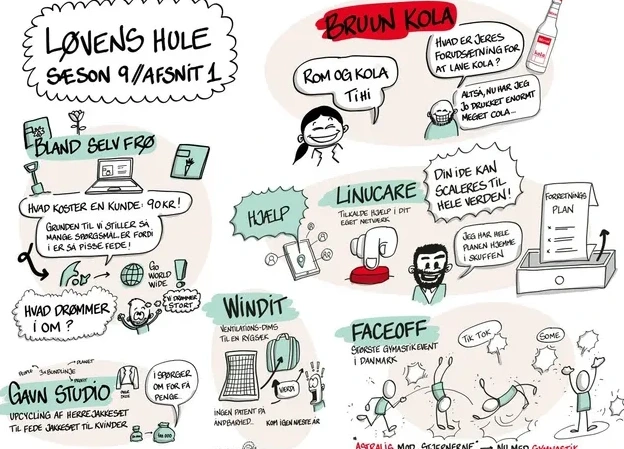 LØVENS HULE
SÆSON 9//AFSNIT 1
BRUUN KOLA
HVAD ER JERES
FORUDSÆTNING FOR
AT LAVE KOLA?
ROM OG KOLA
TIHI
ALTSÅ, NU HAR JEG
JO DRUKKET ENORMT
MEGET COLA...
BLAND SELV FRØ
HVAD KOSTER EN KUNDE: 90 KR!
GRUNDEN TIL VI STILLER SÅ
MANGE SPØRGSMÅL ER FORDI
I ER SÅ PISSE FEDE!
GO
WORLD
WIDE
HVAD DRØMMER
I OM?
VI DRØMMER
STORT
LINUCARE
HJÆLP
TILKALDE HJÆLP I DIT
EGET NETVÆRK
DIN IDE KAN
SCALERES TIL
HELE VERDEN!
JEG HAR HELE
PLANEN HJEMME
I SKUFFEN
FORRETNINGS
PLAN
WINDIT
VENTILATIONS-DIMS
TIL EN RYGSÆK
VÆRDI
INGEN PATENT PÅ
ÅNDBARHED...
KOM IGEN NÆSTE ÅR
FACEOFF
STØRSTE GYMNASTIKEVENT
I DANMARK
TIK TOK
SOME
PEOPLE
3X BUNDLINJE
PLANET
PROFIT
GAVN STUDIO
UPCYCLING AF HERREJAKKESÆT
TIL FEDE JAKKESÆT TIL KVINDER
I SPØRGER
OM FOR FÅ
PENGE.
"ASTRALIS MØD STJERNERNE" → NU MED GYMNASTIK